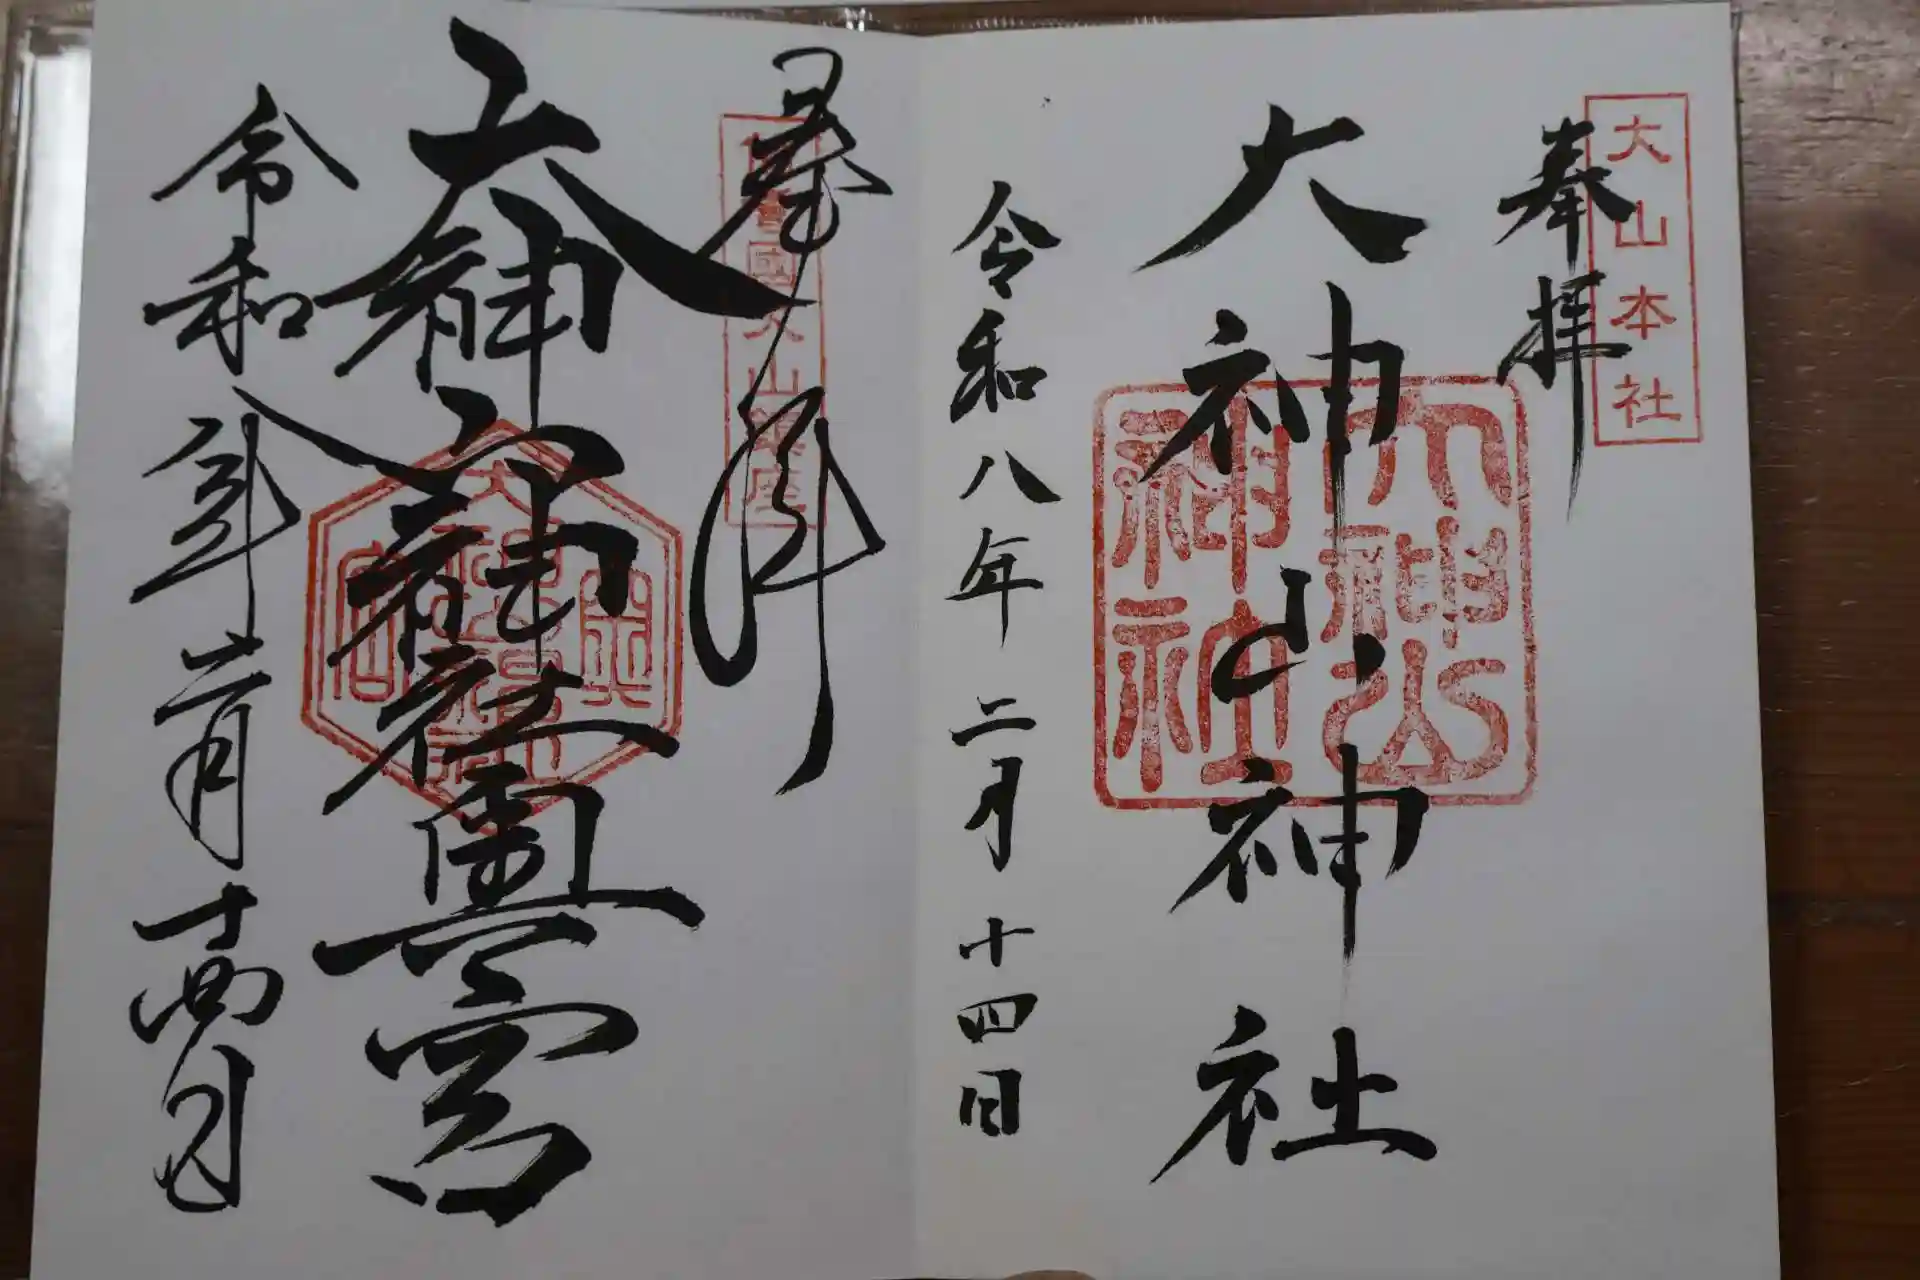 大山本社
奉拝
大神山神社
大神山
神社
令和八年二月十四日
奉拝
大神山神社奥宮
令和八年二月十四日